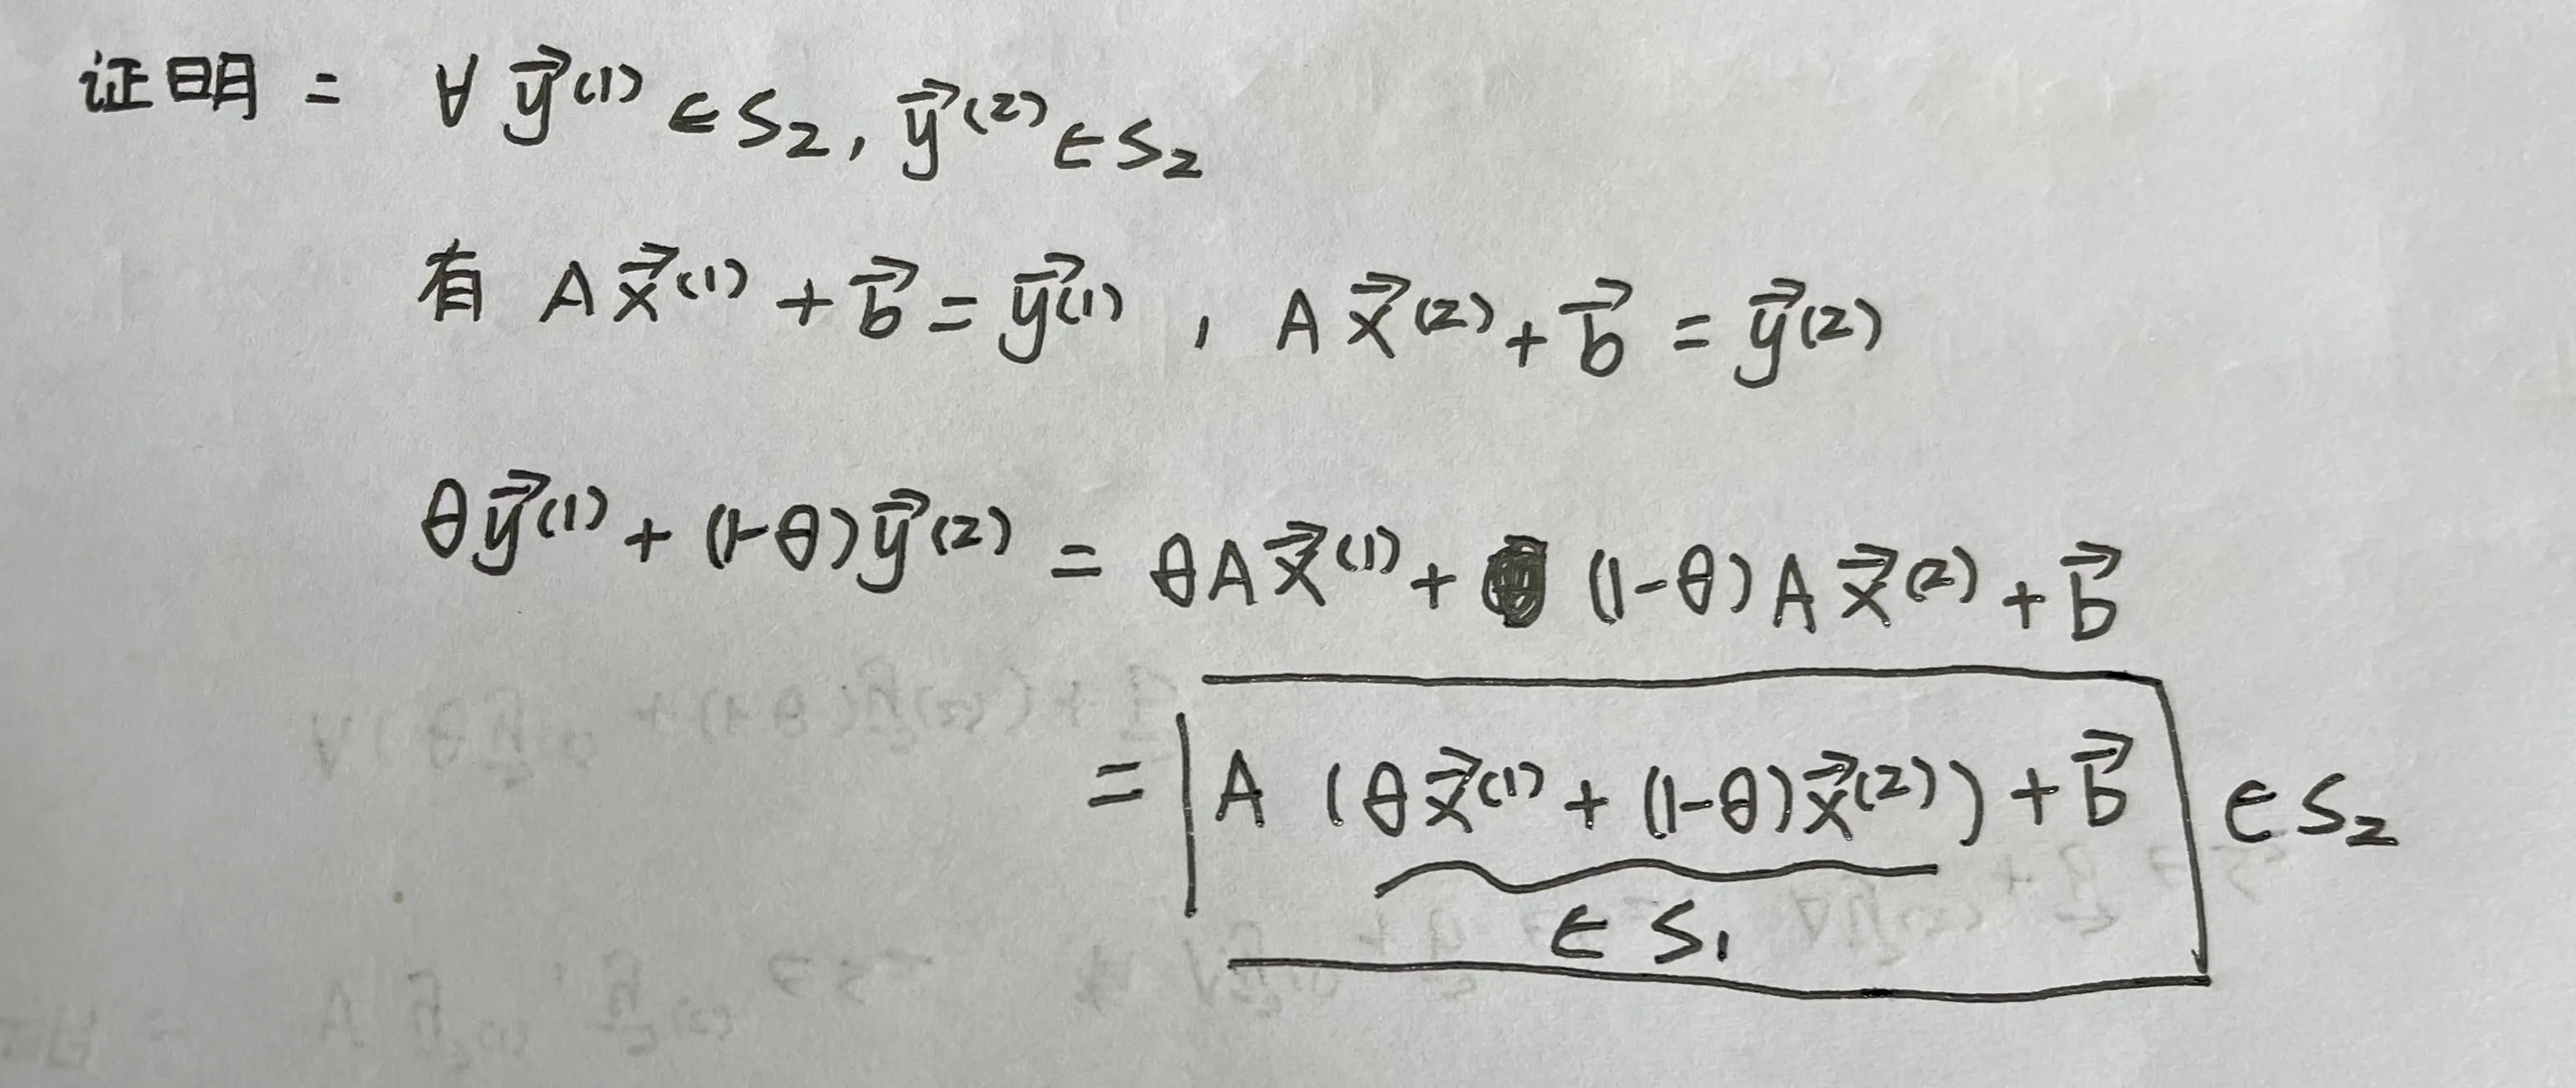 证明: ∀ y⃗⁽¹⁾ ∈ S₂, y⃗⁽²⁾ ∈ S₂
有 A x⃗⁽¹⁾ + b⃗ = y⃗⁽¹⁾ , A x⃗⁽²⁾ + b⃗ = y⃗⁽²⁾
θ y⃗⁽¹⁾ + (1-θ) y⃗⁽²⁾ = θ A x⃗⁽¹⁾ + (1-θ) A x⃗⁽²⁾ + b⃗
= A (θ x⃗⁽¹⁾ + (1-θ) x⃗⁽²⁾) + b⃗ ∈ S₂
∈ S₁